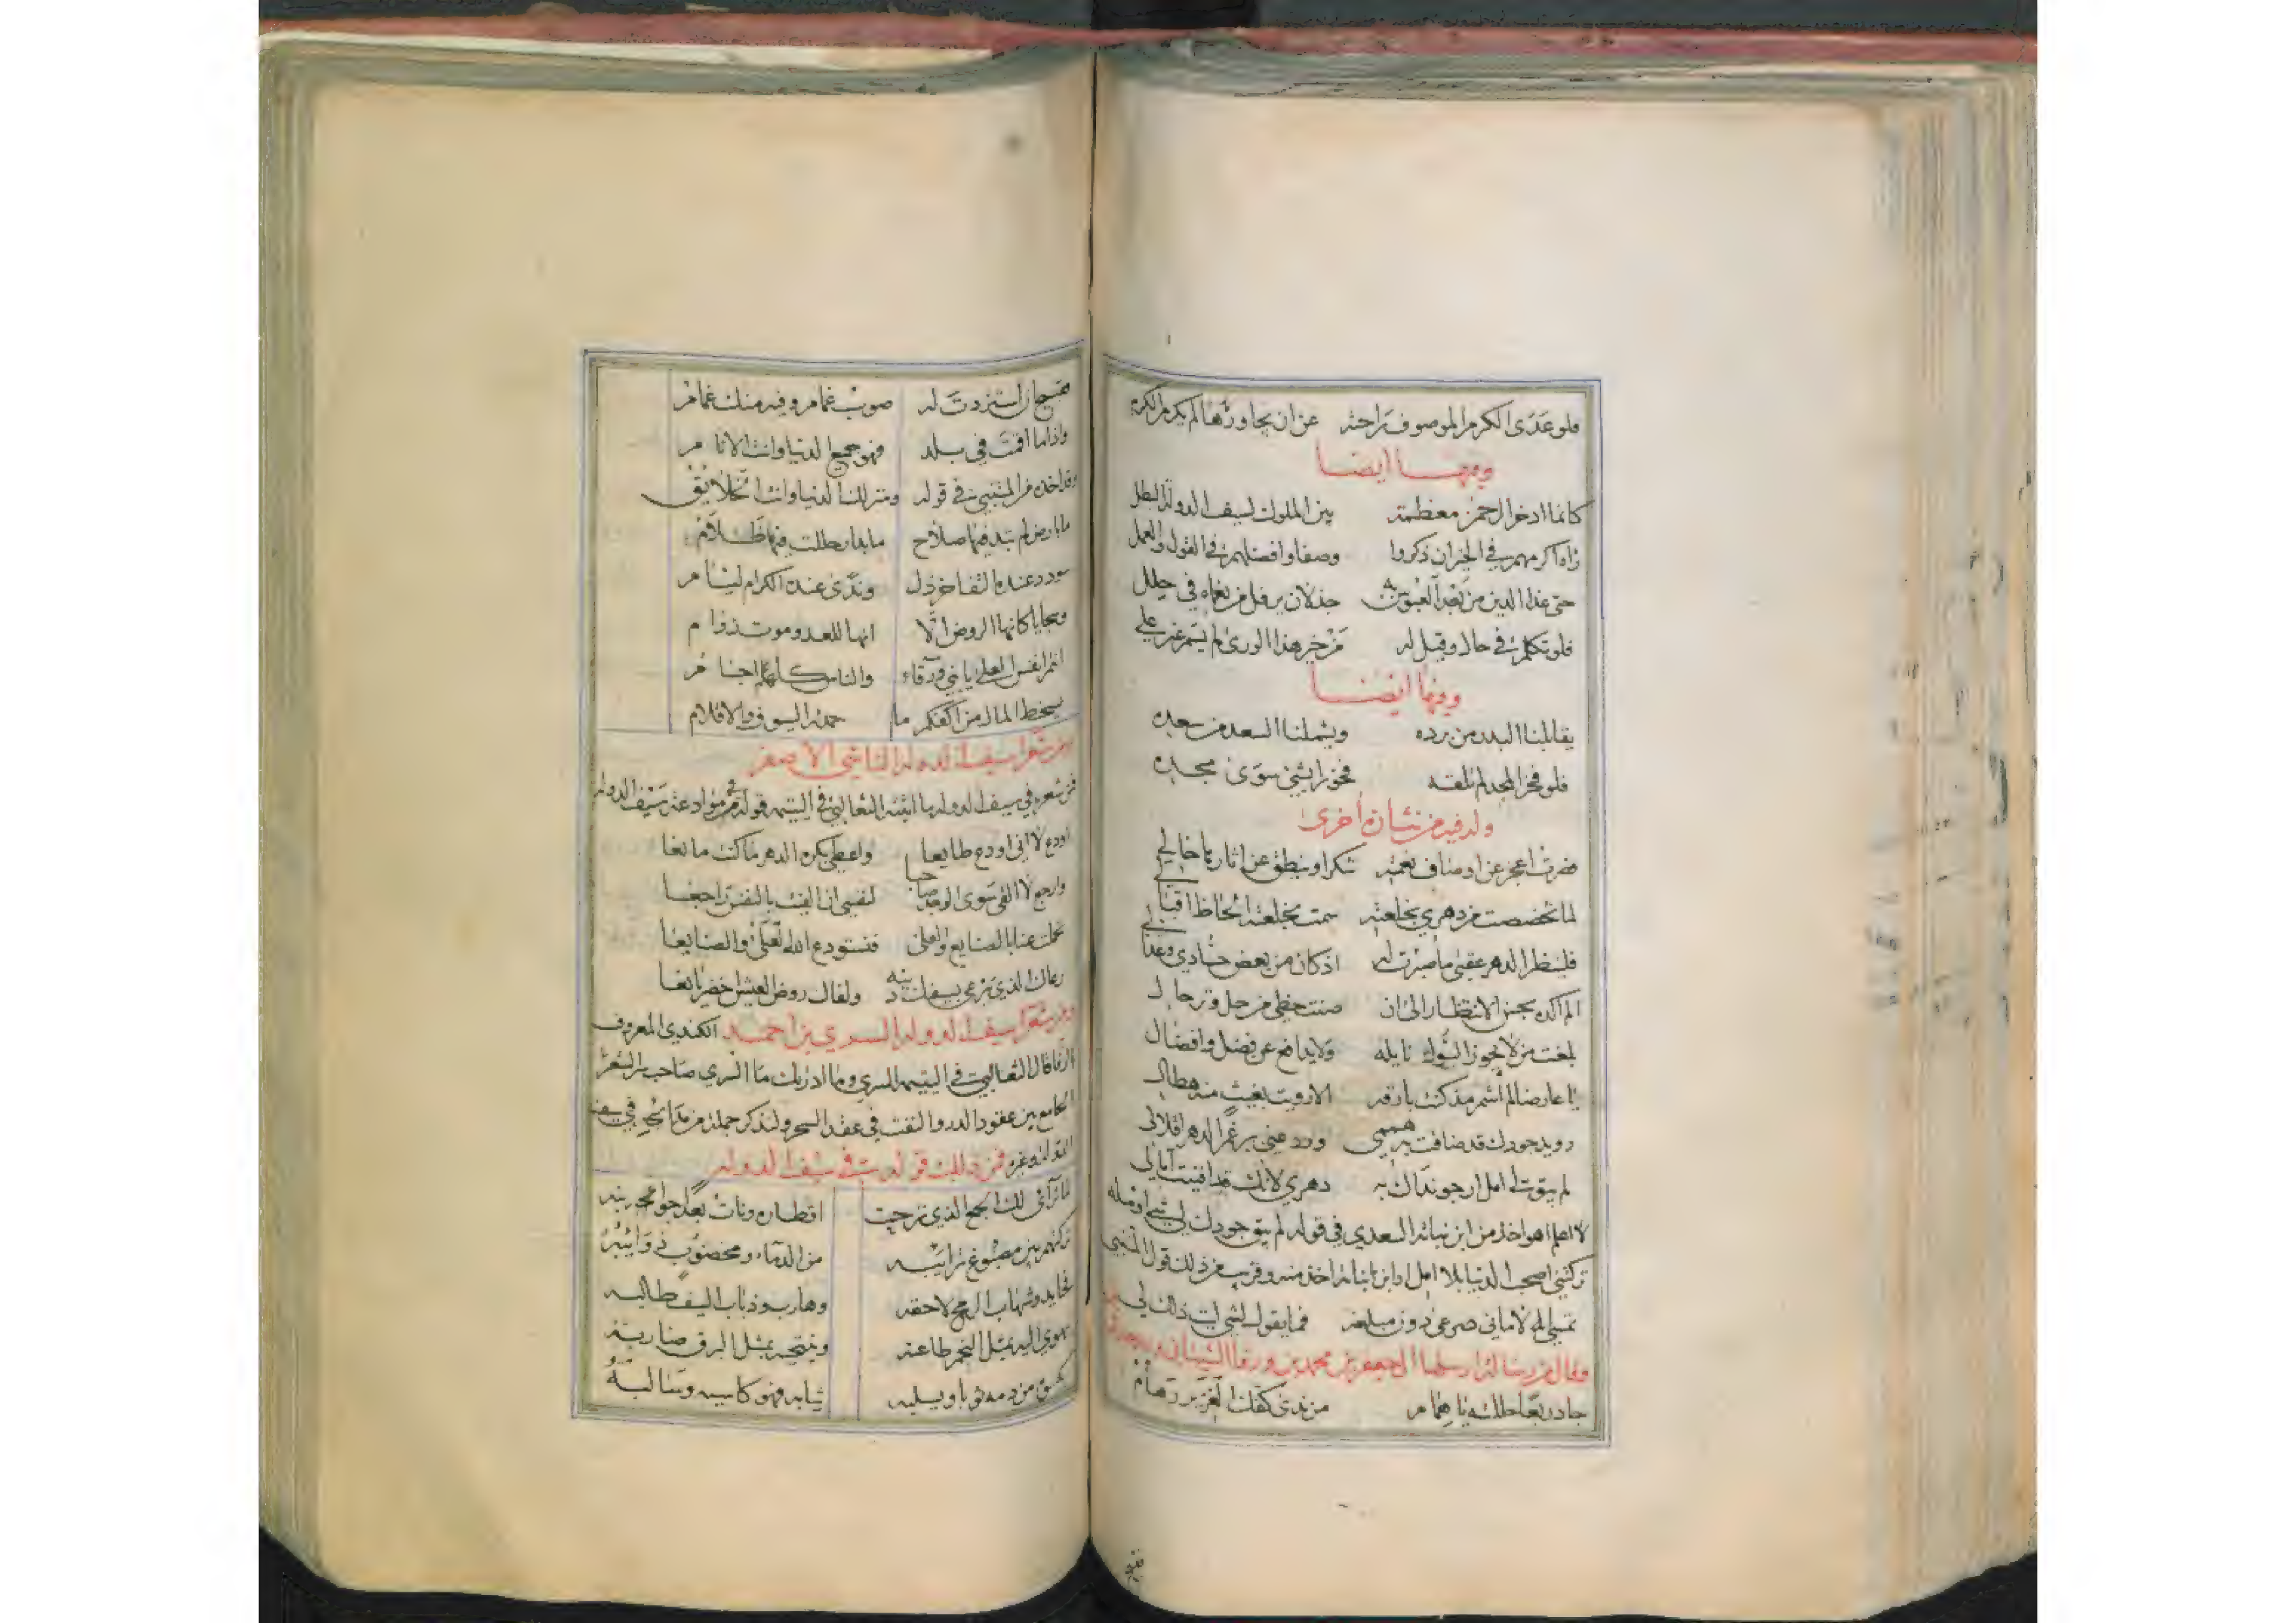 فلو عدى الكرم الموصوف راحته عن ان يجاوزها لم يكرم الكرم
ومنها ايضا
كانما ادخر الرحمن معظمة بين الملوك لسيف الدولة البطل
رآه اكرمهم في الخير ان ذكروا وصفا وافضلهم في القول والعمل
حتى غدا الدين من بعد العبوس به جذلان يرفل من نعماه في حلل
فلو تكلم في حال وقيل له من خير هذا الورى لم يسم غير علي
ومنها ايضا
يقابلنا البدر من برده ويشملنا السعد من سعده
فلو فخر المجد لم تلقه فخورا بشئ سوى مجده
وله فيه من نشان اخرى
صرت اعجز عن اوصاف نعمته شكرا وينطق عن اثارها حالي
لما تخصصت من دهري بخلعته سمت بخلعته الحاظ اقبالي
فلينظر الدهر عقبى ما صبرت له اذ كان من بعض حسادي وعذالي
الم اكده بحسن الانتظار الى ان صنت حظي من حل وترحال
بلغت من لا يجوز السول نايله ولا يدافع عن فضل وافضال
يا عارضا لم اشم مذ كنت بارقه الا رويت بغيث منه هطال
رويد جودك قد ضاقت به هممي ورد عني برغم الدهر اقلالي
لم يبق لي امل ارجو نداك به دهري لانك قد افنيت آمالي
لا اعلم اهو اخذ من ابن نباتة السعدي في قوله لم يبق جودك لي شئ اومله
تركتني اصحب الدنيا بلا امل او ابن نباتة اخذ منه وقريب من ذلك قول المتنبي
تمسي الاماني صرعى دون مبلغه فما يقول لشئ ليت ذلك لي
وقال من رسالة ارسلها الى جعفر بن محمد بن ورقا الشيباني
جاد ربعا حللته يا همام من ندى كفك الغزير رهام
فقبيح ان استزدت له صوب غمام وفيه منك غمام
واذا ما اقمت في بلد فهو جميع الدنيا وانت الانام
وقد اخذه من المتنبي في قوله ومنزلك الدنيا وانت الخلايق
ما بارض لم تبد فيها صلاح ما بدار حللت فيها ظلام
سودد عنده التفاخر ذل وندى عنده الكرام ليام
وسجايا كانها الروض الا انها للعدو موت زوام
انتم انفس العلى يا بني ورقاء والناس كلهم اجسام
يسخط المال من اكفكم ما حمدته السيوف والاقلام
ومن شعرا سيف الدولة الناشي الاصغر
فمن شعره في سيف الدولة ما اثبته الثعالبي في اليتيمة قوله سيف الدولة
اودع لا اني اودع طايعا واعطي بكره الدهر ما كنت مانعا
وارجع لا القى سوى الوجد صاحبا لنفسي ان الفيت بالنفس راجعا
تحملت عنا بالصنايع والعلى فنستودع الله العلى والصنايعا
رعاك الذي يرعى بسيفك دينه ولقاك روض العيش اخضر يانعا
ومن شعرا سيف الدولة السري بن احمد الكندي المعروف
بالرفا قال الثعالبي في اليتيمة السري وما ادراك ما السري صاحب سر الشعر
الجامع بين عقود الدر والنفث في عقد السحر ولنذكر جملة من مدائحه في سيف
الدولة وغيره فمن ذلك قوله في سيف الدولة
لما ترآى لك الجمع الذي نزحت اقطاره ونات بعدا جوانبه
تركتهم بين مصبوغ ترائبه من الدماء ومخضوب ذوائبه
فحايد وشهاب الرمح لاحقه وهارب وذباب السيف طالبه
يهوي اليه بمثل النجم طاعنه وينتحيه بمثل البرق ضاربه
يكسوه من دمه ثوبا ويسلبه ثيابه فهو كاسيه وسالبه